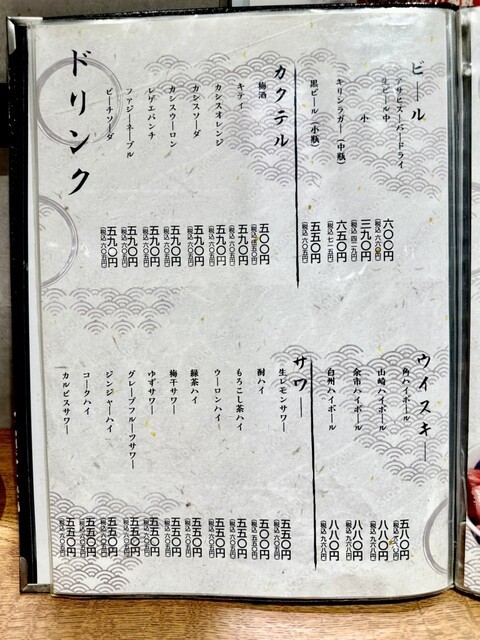 ドリンク
ビール
アサヒスーパードライ
生ビール 中 六〇〇円 (税込 六六〇円)
小 三九〇円 (税込 四二九円)
キリンラガー(中瓶) 六五〇円 (税込 七一五円)
黒ビール(小瓶) 五五〇円 (税込 六〇五円)
カクテル
梅酒 五〇〇円 (税込 五五〇円)
キティ 五五〇円 (税込 六〇五円)
カシスオレンジ 五五〇円 (税込 六〇五円)
カシスソーダ 五五〇円 (税込 六〇五円)
カシスウーロン 五五〇円 (税込 六〇五円)
レゲエパンチ 五五〇円 (税込 六〇五円)
ファジーネーブル 五五〇円 (税込 六〇五円)
ピーチソーダ 五五〇円 (税込 六〇五円)
ウイスキー
角ハイボール 五八〇円 (税込 六三八円)
山崎ハイボール 八八〇円 (税込 九六八円)
余市ハイボール 八八〇円 (税込 九六八円)
白州ハイボール 八八〇円 (税込 九六八円)
サワー
生レモンサワー 五五〇円 (税込 六〇五円)
酎ハイ 五〇〇円 (税込 五五〇円)
もろこし茶ハイ 五五〇円 (税込 六〇五円)
ウーロンハイ 五五〇円 (税込 六〇五円)
緑茶ハイ 五五〇円 (税込 六〇五円)
梅干サワー 五五〇円 (税込 六〇五円)
ゆずサワー 五五〇円 (税込 六〇五円)
グレープフルーツサワー 五五〇円 (税込 六〇五円)
ジンジャーハイ 五五〇円 (税込 六〇五円)
コークハイ 五五〇円 (税込 六〇五円)
カルピスサワー 五五〇円 (税込 六〇五円)